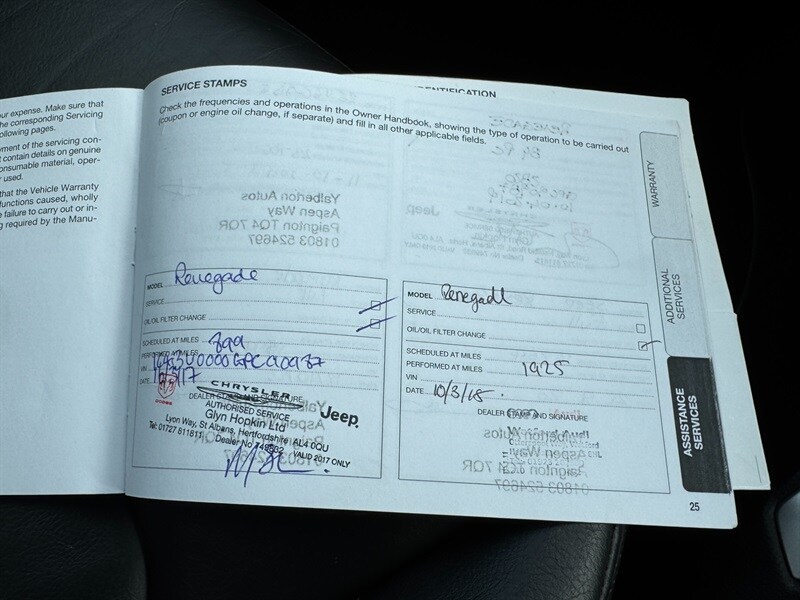 ur expense. Make sure that
he corresponding Servicing
ollowing pages.
yment of the servicing con-
t contain details on genuine
onsumable material, oper-
r used.
that the Vehicle Warranty
functions caused, wholly
e failure to carry out or in-
g required by the Manu-
SERVICE STAMPS
Check the frequencies and operations in the Owner Handbook, showing the type of operation to be carried out
(coupon or engine oil change, if separate) and fill in all other applicable fields.
ENTIFICATION
Yalberton Autos
Aspen Way
Paignton TQ4 7QR
01803 524697
MODEL Renegade
SERVICE
OIL/OIL FILTER CHANGE
SCHEDULED AT MILES
PERFORMED AT MILES
VIN
DATE
CHRYSLER
DEALER STAMP AND SIGNATURE
AUTHORISED SERVICE
Jeep
Glyn Hopkin Ltd
Lyon Way, St Albans, Hertfordshire AL4 0QU
Tel: 01727 811811 Dealer No
VALID 2017 ONLY
MODEL Renegade
SERVICE
OIL/OIL FILTER CHANGE
SCHEDULED AT MILES
PERFORMED AT MILES 1925
VIN
DATE 10/3/18.
DEALER STAMP AND SIGNATURE
Yalberton Autos
Aspen Way
Paignton TQ4 7QR
01803 524697
WARRANTY
ADDITIONAL
SERVICES
ASSISTANCE
SERVICES
25